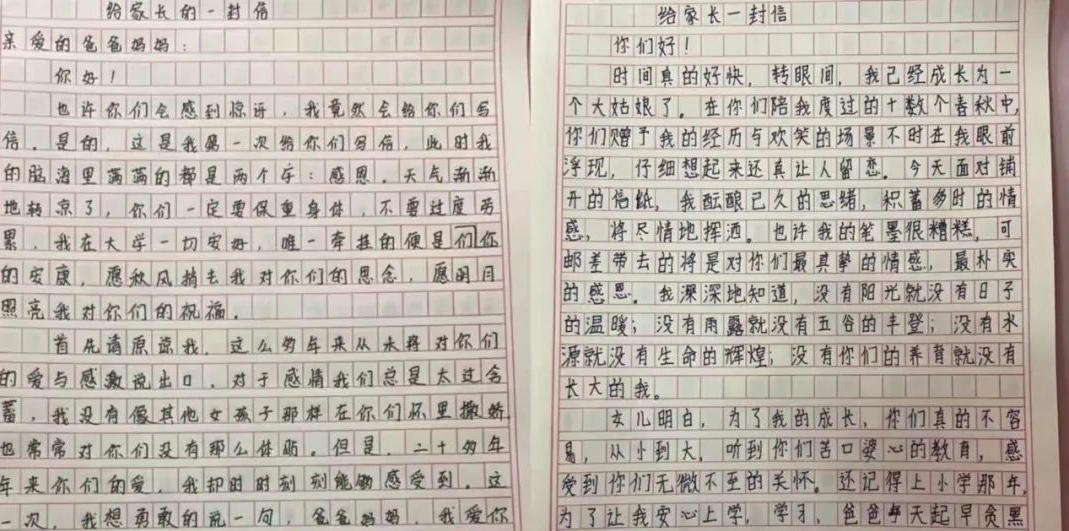 给家长的一封信
亲爱的爸爸妈妈：
你好！
也许你们会感到惊讶，我竟然会给你们写
信。是的，这是我第一次给你们写信，此时我
的脑海里满满的都是两个字：感恩。天气渐渐
地转凉了，你们一定要保重身体，不要过度劳
累，我在大学一切安好，唯一牵挂的便是们你
的安康，愿秋风捎去我对你们的思念，愿明月
照亮我对你们的祝福。
首先请原谅我，这么多年来从未将对你们
的爱与感激说出口，对于感情我们总是太过含
蓄，我没有像其他女孩子那样在你们怀里撒娇
也常常对你们没有那么体贴。但是，二十多年
年来你们的爱，我却时时刻刻能够感受到。这
一次，我想勇敢的说一句，爸爸妈妈，我爱你
给家长一封信
你们好！
时间真的好快，转眼间，我已经成长为一
个大姑娘了。在你们陪我度过的十数个春秋中，
你们赠予我的经历与欢笑的场景不时在我眼前
浮现，仔细想起来还真让人留恋。今天面对铺
开的信纸，我酝酿已久的思绪，积蓄多时的情
感，将尽情地挥洒。也许我的笔墨很糟糕，可
邮差带去的将是对你们最真挚的情感，最朴实
的感恩。我深深地知道，没有阳光就没有日子
的温暖；没有雨露就没有五谷的丰登；没有水
源就没有生命的辉煌；没有你们的养育就没有
长大的我。
女儿明白，为了我的成长，你们真的不容
易，从小到大，听到你们苦口婆心的教育，感
受到你们无微不至的关怀。还记得上小学那年，
为了让我安心上学，学习，爸爸每天起早贪黑